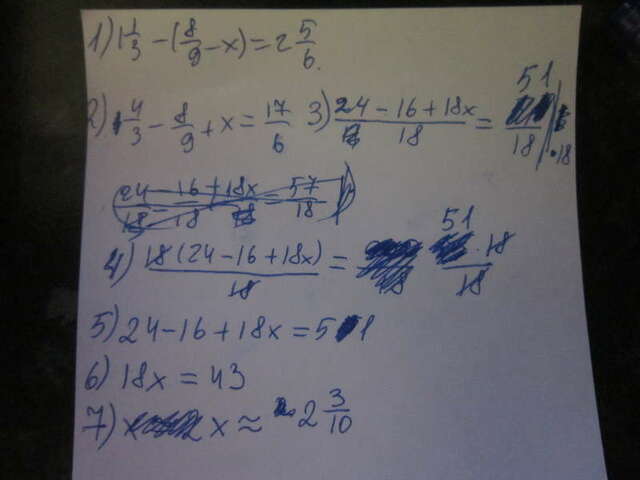 1) 1 1/3 - (8/9 - x) = 2 5/6.
2) 4/3 - 8/9 + x = 17/6 3) 24 - 16 + 18x / 18 = 51/18 | · 18
24 - 16 + 18x / 18 18 18 = 57/18
4) 18 (24 - 16 + 18x) / 18 = 51 · 18 / 18
5) 24 - 16 + 18x = 51
6) 18x = 43
7) x ≈ 2 3/10